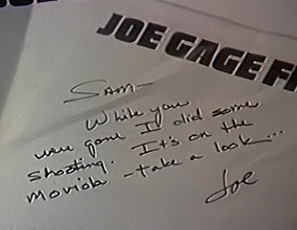 JOE GAGE FI
Sam—
While you
were gone I did some
shooting. It's on the
Moviola - take a look...
Joe